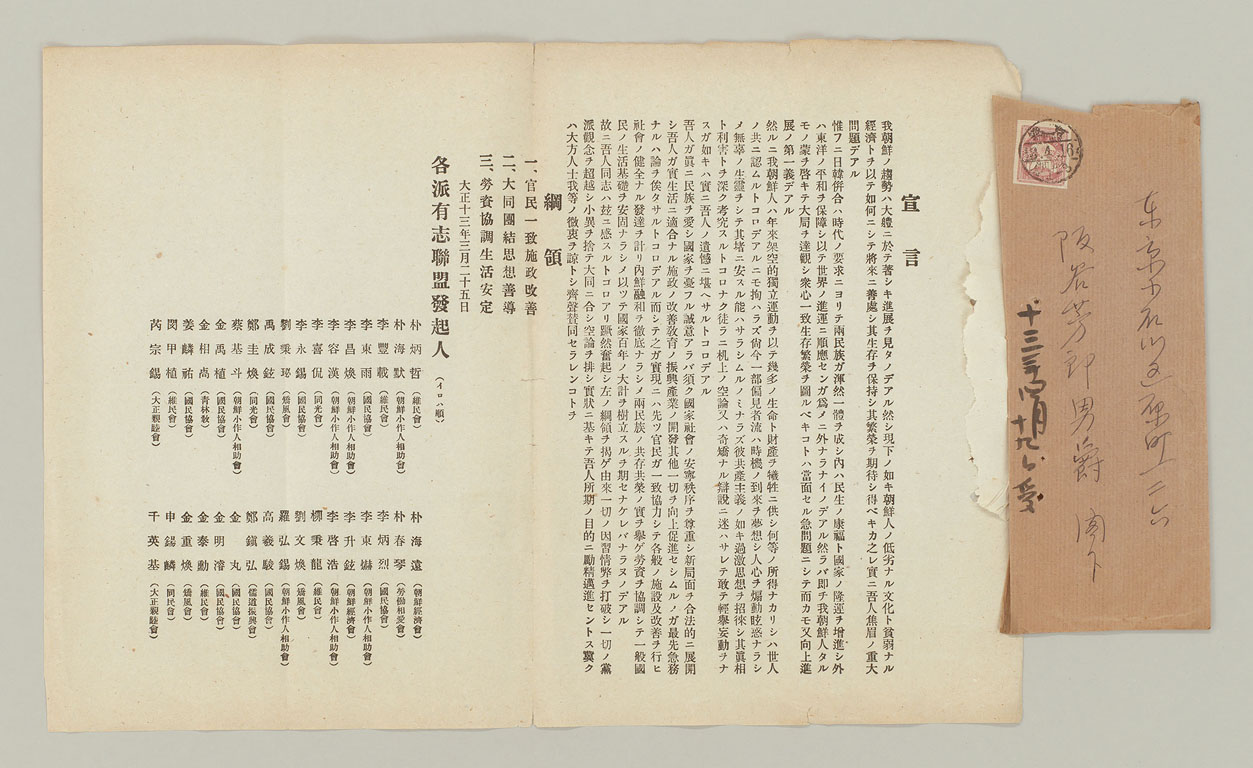 東京小石川区原町一二六
阪谷芳郎男爵 閣下
十三年四月十九日受
宣言
我朝鮮ノ趨勢ハ大體ニ於テ著シキ進展ヲ見タノデアル然シ現下ノ如キ朝鮮人ノ低劣ナル文化ト貧弱ナル
經濟トヲ以テ如何ニシテ將來ニ善處シ其生存ヲ保持シ其繁榮ヲ期待シ得ベキカ之レ實ニ吾人焦眉ノ重大
問題デアル
惟フニ日韓併合ハ時代ノ要求ニヨリテ兩民族ガ渾然一體ヲ成シ内ハ民生ノ康福ト國家ノ隆運ヲ增進シ外
ハ東洋ノ平和ヲ保障シ以テ世界ノ進運ニ順應センガ爲メニ外ナラナイノデアル然ラバ即チ我朝鮮人タル
モノ蒙ヲ啓キテ大局ヲ達觀シ衆心一致生存繁榮ヲ圖ルベキコトハ當面セル急問題ニシテ而カモ又向上進
展ノ第一義デアル
然ルニ我朝鮮人ハ年來架空的獨立運動ヲ以テ幾多ノ生命ト財產ヲ犠牲ニ供シ何等ノ所得ナカリシハ世人
ノ共ニ認ムルトコロデアルニモ拘ハラズ尙今一部偏見者流ハ時機ノ到來ヲ夢想シ人心ヲ煽動眩惑ナラシ
メ無辜ノ生靈ヲシテ其堵ニ安スル能ハサラシムルノミナラズ彼共產主義ノ如キ過激思想ヲ招徠シ其眞相
ト利害トヲ深ク考究スルトコロナク徒ラニ机上ノ空論又ハ奇矯ナル辯說ニ迷ハサレテ敢テ輕擧妄動ヲナ
スガ如キハ實ニ吾人ノ遺憾ニ堪ヘサルトコロデアル
吾人ガ眞ニ民族ヲ愛シ國家ヲ憂フル誠意アラバ須ク國家社會ノ安寧秩序ヲ尊重シ新局面ヲ合法的ニ展開
シ吾人ガ實生活ニ適合ナル施政ノ改善敎育ノ振興產業ノ開發其他一切ヲ向上促進セシムルノガ最先急務
ナルハ論ヲ俟タサルトコロデアル而シテ之ガ實現ニハ先ヅ官民ガ一致協力シテ各般ノ施設及改善ヲ行ヒ
社會ノ健全ナル發達ヲ計リ内鮮融和ヲ徹底ナラシメ兩民族ノ共存共榮ノ實ヲ擧ゲ勞資ヲ協調シテ一般國
民ノ生活基礎ヲ安固ナラシメ以ツテ國家百年ノ大計ヲ樹立スルヲ期セナケレバナラヌノデアル
故ニ吾人同志ハ玆ニ感スルトコロアリ蹶然奮起シ左ノ綱領ヲ揭ゲ由來一切ノ因習情弊ヲ打破シ一切ノ黨
派觀念ヲ超越シ小異ヲ捨テ大同ニ合シ空論ヲ排シ實狀ニ基キテ吾人所期ノ目的ニ勵精邁進セントス冀ク
ハ大方人士我等ノ微衷ヲ諒トシ齊聲贊同セラレンコトヲ
綱領
一、官民一致施政改善
二、大同團結思想善導
三、勞資協調生活安定
大正十三年三月二十五日
各派有志聯盟發起人（イロハ順）
朴炳哲（維民會）
朴海默（朝鮮小作人相助會）
李豐載（維民會）
李東雨（國民協會）
李昌煥（朝鮮小作人相助會）
李容漢（朝鮮小作人相助會）
李喜侃（同光會）
李永錫（國民協會）
劉秉珌（矯風會）
禹成鉉（國民協會）
鄭圭煥（同光會）
蔡基斗（朝鮮小作人相助會）
金禹植（國民協會）
金相卨（靑林敎）
姜麟祐（國民協會）
閔甲植（維民會）
芮宗錫（大正親睦會）
朴海遠（朝鮮經濟會）
朴春琴（勞働相愛會）
李炳烈（國民協會）
李東爀（朝鮮小作人相助會）
李升鉉（朝鮮經濟會）
李啓浩（朝鮮小作人相助會）
柳秉龍（維民會）
劉文煥（矯風會）
羅弘錫（朝鮮小作人相助會）
高羲駿（國民協會）
鄭鎭弘（儒道振興會）
金丸（國民協會）
金明濬（國民協會）
金泰勳（維民會）
金重煥（矯風會）
申錫麟（同民會）
千英基（大正親睦會）